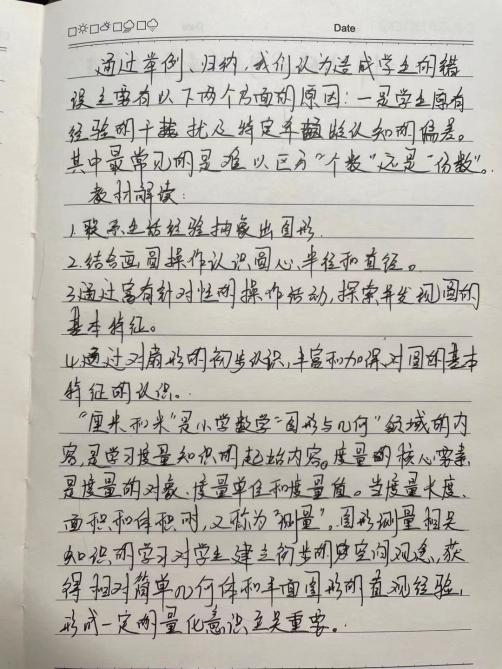 Date
通过举例、归纳,我们认为造成学生的错
误主要有以下两个方面的原因:一是学生原有
经验的干扰及特定年龄段认知的偏差。
其中最常见的是难以区分“个数”还是“份数”。
教材解读:
1.联系生活经验抽象出圆形
2.结合画圆操作认识圆心、半径和直径。
3.通过富有针对性的操作活动,探索并发现圆的
基本特征。
4.通过对扇形的初步认识,丰富和加深对圆的基本
特征的认识。
“厘米和米”是小学数学“图形与几何”领域的内
容,是学习度量知识的起始内容。度量的核心要素
是度量的对象、度量单位和度量值。当度量长度、
面积和体积时,又称为“测量”,图形测量相关
知识的学习对学生建立初步的空间观念,获
得相对简单几何体和平面图形的直观经验,
形成一定的量化意识至关重要。